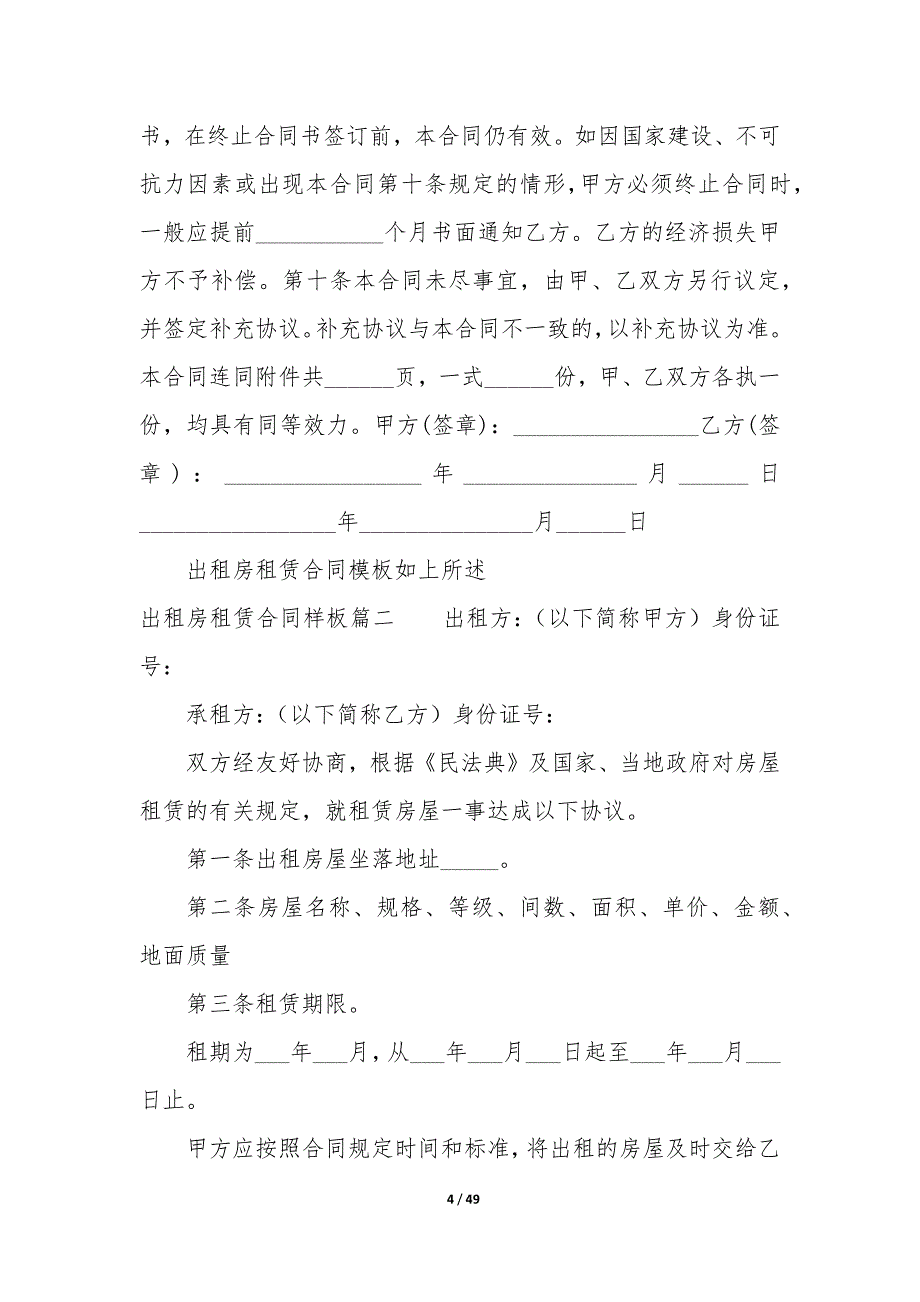 书，在终止合同书签订前，本合同仍有效。如因国家建设、不可
抗力因素或出现本合同第十条规定的情形，甲方必须终止合同时，
一般应提前___________个月书面通知乙方。乙方的经济损失甲
方不予补偿。第十条本合同未尽事宜，由甲、乙双方另行议定，
并签定补充协议。补充协议与本合同不一致的，以补充协议为准。
本合同连同附件共______页，一式______份，甲、乙双方各执一
份，均具有同等效力。甲方(签章)：________________乙方(签
章)：_________________年_______________月______日
_________________年_______________月______日
出租房租赁合同模板如上所述
出租房租赁合同样板篇二 出租方：（以下简称甲方）身份证
号：
承租方：（以下简称乙方）身份证号：
双方经友好协商，根据《民法典》及国家、当地政府对房屋
租赁的有关规定，就租赁房屋一事达成以下协议。
第一条出租房屋坐落地址_____。
第二条房屋名称、规格、等级、间数、面积、单价、金额、
地面质量
第三条租赁期限。
租期为___年___月，从___年___月___日起至___年___月___
日止。
甲方应按照合同规定时间和标准，将出租的房屋及时交给乙
4 / 49